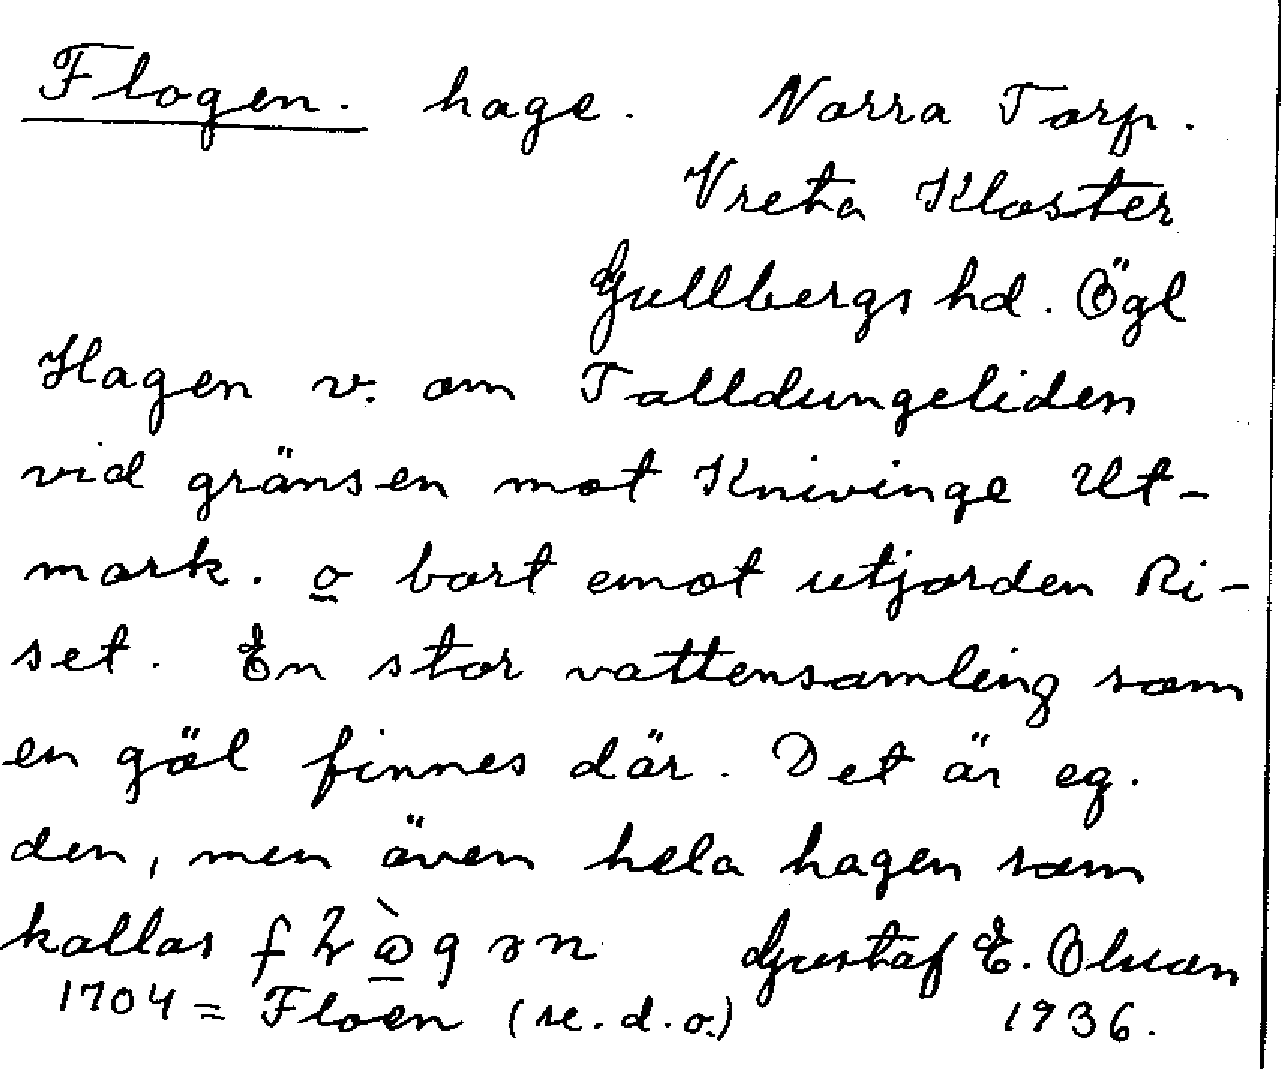 Flogen. hage. Norra Torp.
Vreta Kloster
Gullbergs hd. Ögl
Hagen v. om Talldungeliden
vid gränsen mot Knivinge Ut-
mark. o bort emot utjorden Ri-
set. En stor vattensamling som
en göl finnes där. Det är eg.
den, men även hela hagen som
kallas Gustaf E. Olsson
1704 = Floen (se. d. o.) 1936.